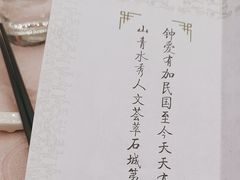 钟爱有加民国至今天天
山青水秀人文荟萃石城第